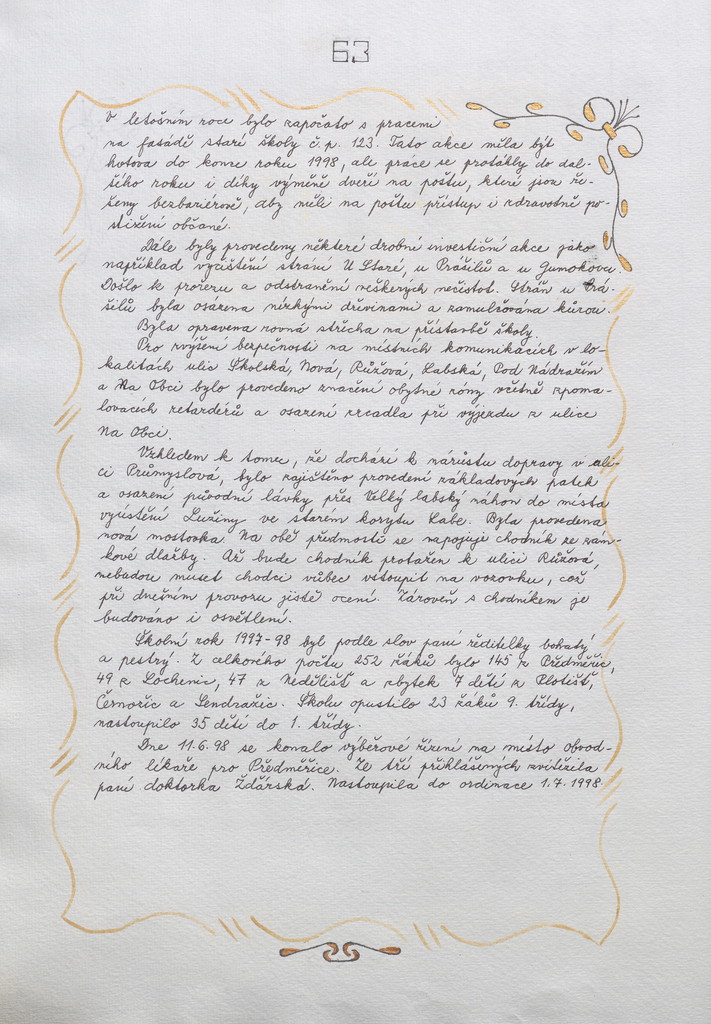 63
V letošním roce bylo započato s pracemi
na fasádě staré školy č.p. 123. Tato akce měla být
hotova do konce roku 1998, ale práce se protáhly do dal-
šího roku i díky výměně dveří na poštu, které jsou ře-
šeny bezbariérově, aby měli na poštu přístup i zdravotně po-
stižení občané.
Dále byly provedeny některé drobné investiční akce jako
například vyčištění strání U Staré, u Prášilů a u Gumokovu.
Došlo k prořezu a odstranění veškerých nečistot. Stráň u Prá-
šilů byla osázena nízkými dřevinami a zamulčována kůrou.
Byla opravena rovná střecha na přístavbě školy.
Pro zvýšení bezpečnosti na místních komunikacích v lo-
kalitách ulic Školská, Nová, Růžová, Labská, Pod Nádražím
a Na Obci bylo provedeno značení obytné zóny včetně zpoma-
lovacích retardérů a osazení zrcadla při výjezdu z ulice
Na Obci.
Vzhledem k tomu, že dochází k nárůstu dopravy v uli-
ci Průmyslová, bylo zajištěno provedení základových patek
a osazení původní lávky přes Velký labský náhon do místa
vyústění Lužiny ve starém korytu Labe. Byla provedena
nová mostovka. Na obě předmostí se napojuje chodník ze zám-
kové dlažby. Až bude chodník protažen k ulici Růžová,
nebudou muset chodci vůbec vstoupit na vozovku, což
při dnešním provozu jistě ocení. Zároveň s chodníkem je
budováno i osvětlení.
Školní rok 1997-98 byl podle slov paní ředitelky bohatý
a pestrý. Z celkového počtu 252 žáků bylo 145 z Předměřic,
49 z Lochenic, 47 z Nedělišť a zbytek 7 dětí z Plotišť,
Černožic a Sendražic. Školu opustilo 23 žáků 9. třídy,
nastoupilo 35 dětí do 1. třídy.
Dne 11.6.98 se konalo výběrové řízení na místo obvod-
ního lékaře pro Předměřice. Ze tří přihlášených zvítězila
paní doktorka Žďárská. Nastoupila do ordinace 1.7.1998.